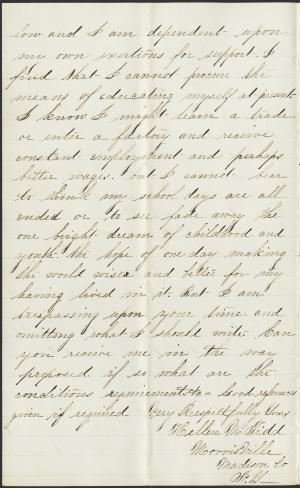 low and I am dependent upon
my own exertions for support. I
find that I cannot procure the
means of educating myself at present
I know I might learn a trade
or enter a factory and receive
constant employment and perhaps
better wages. but I cannot bear
to think my school days are all
ended or to see fade away the
one bright dream of childhood and
youth the hope of one day making
the world wiser and better for my
having lived in it. But I am
trespassing upon your time and
omitting what I should write. Can
you receive me in the way
proposed if so what are the
conditions requirements &c Good references
given if required Very Respectfully Yours
Hellen M Kidd
Morrisville
Madison Co
N.Y.